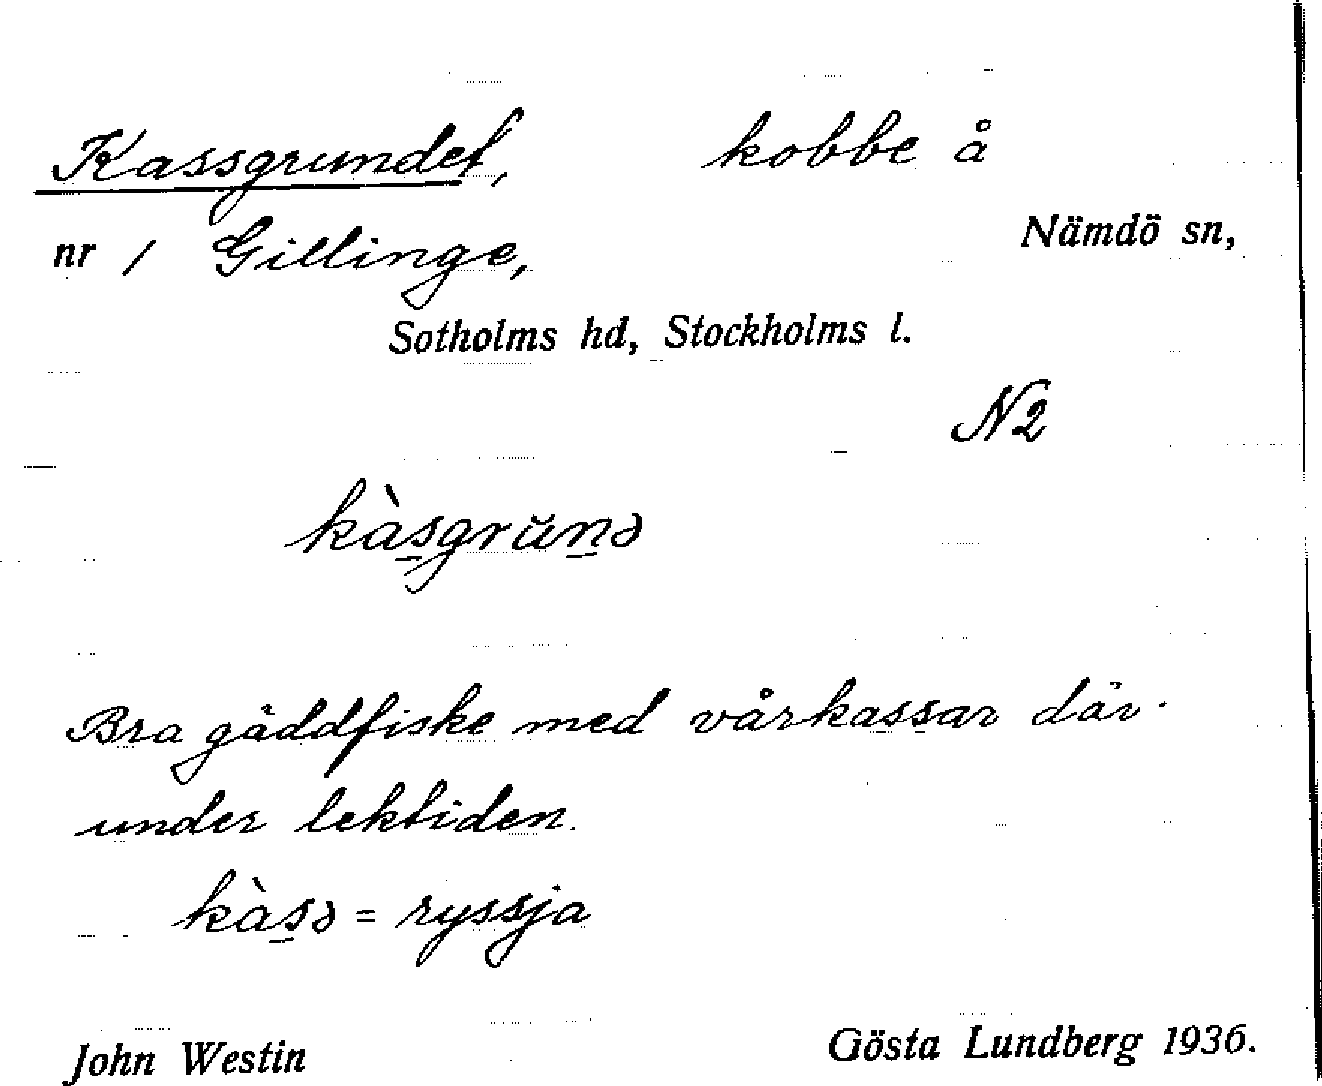 Kassgrundet, kobbe å
nr 1 Gillinge, Nämdö sn,
Sotholms hd, Stockholms l.
N2
kàs̲grŭn̲ə
Bra gäddfiske med vårkassar där
under lektiden.
kàs̲ə = ryssja
John Westin Gösta Lundberg 1936.